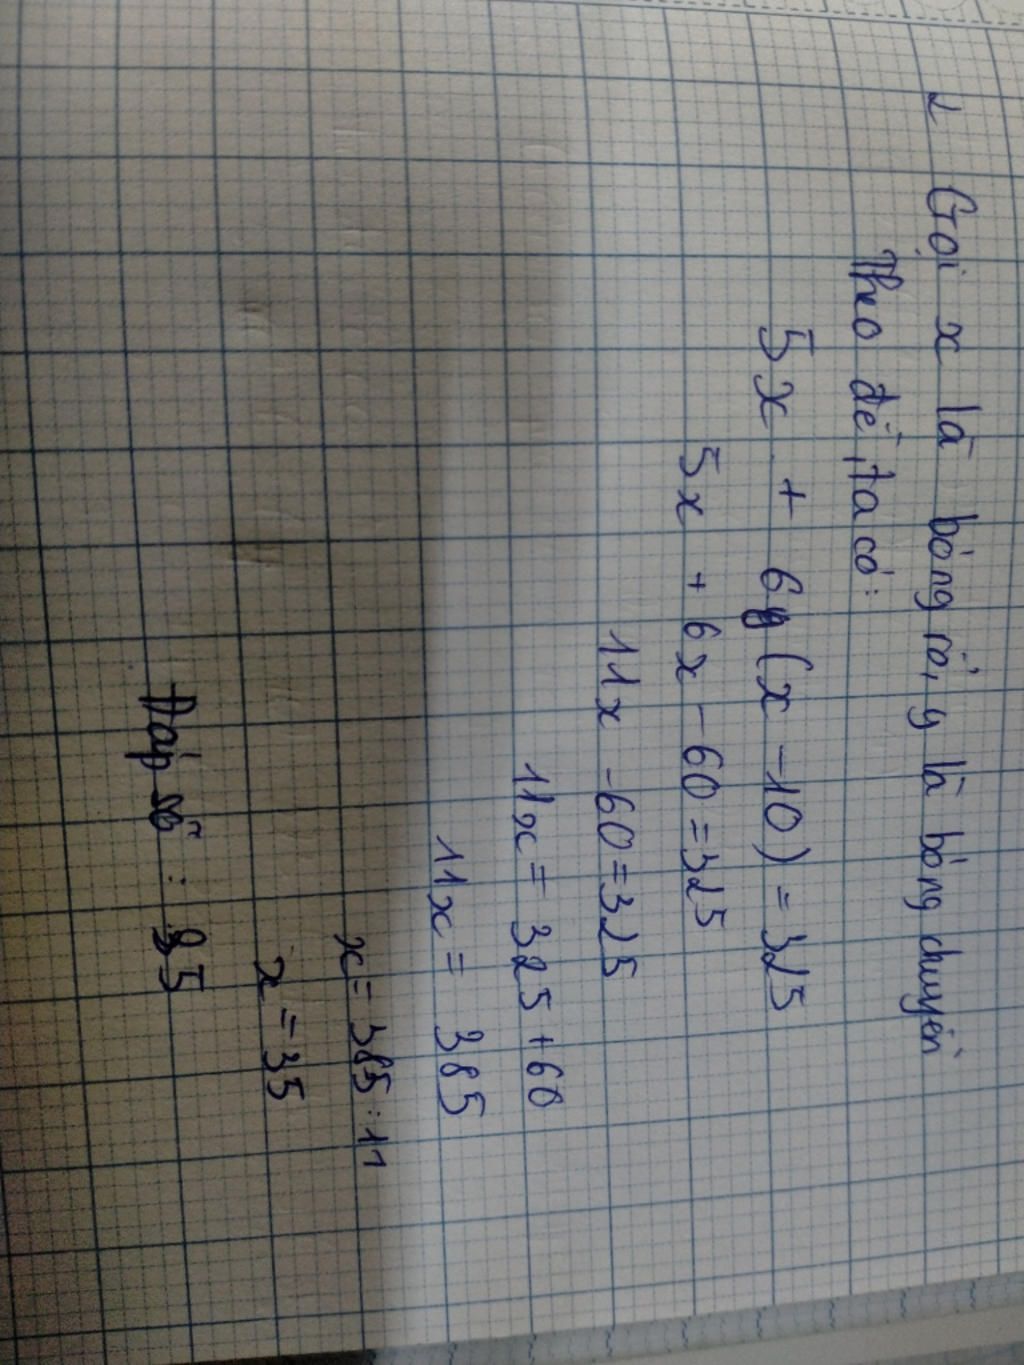 2 Gọi x là bóng rổ, y là bóng chuyền
Theo đề, ta có:
5x + 6 (x - 10) = 325
5x + 6x - 60 = 325
11x - 60 = 325
11x = 325 + 60
11x = 385
x = 385 : 11
x = 35
Đáp số : 35